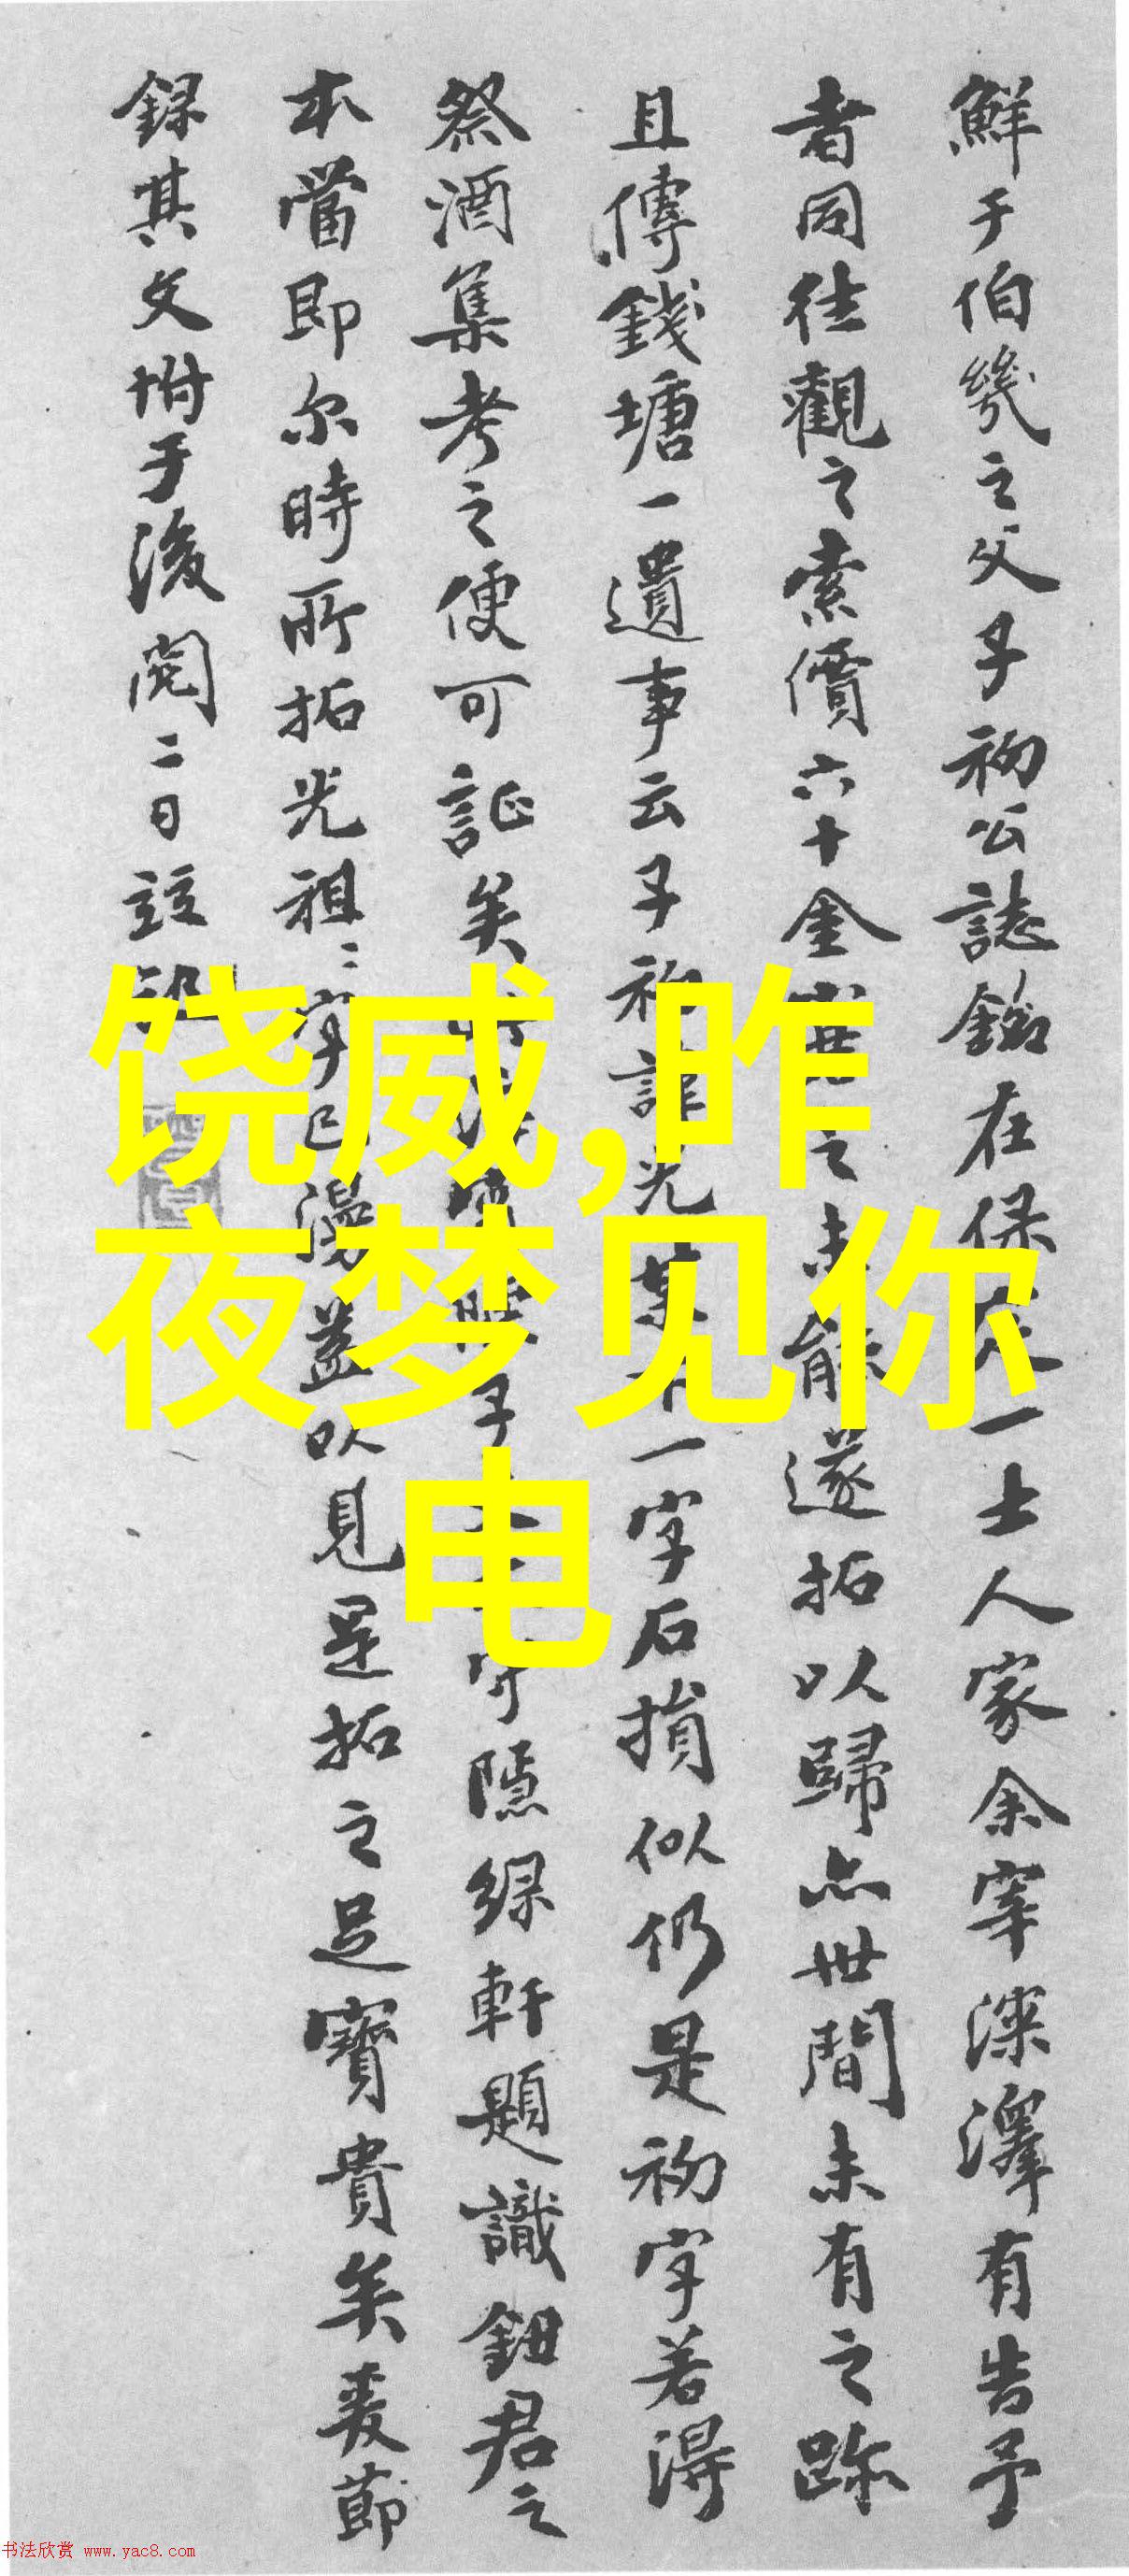 鮮于伯幾之父子初公誌銘在保定一士人家余宰深澤有告予
者同往觀之索價六十金之未能遂拓以歸亦世間未有之跡
且傳錢塘一遺事云子初諱光一字石損似仍是初字若得
祭酒集考之便可証矣子字隱綠軒題識鈕君之
本當即尔時所拓光祖二字已漫益以見是拓之足寶貴矣爰節
録其文坿于後閏二日
饶威,昨
夜梦见你
电
书法欣赏 www.yac8.com